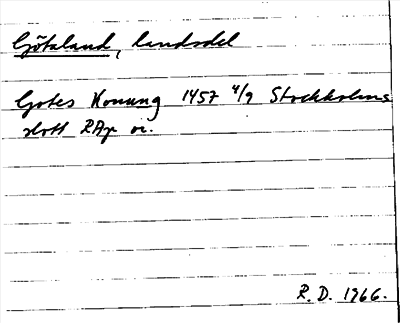 Götaland, landsdel
Gotes Konung 1457 4/9 Stockholms
slott RAp or.
R. D. 1966.